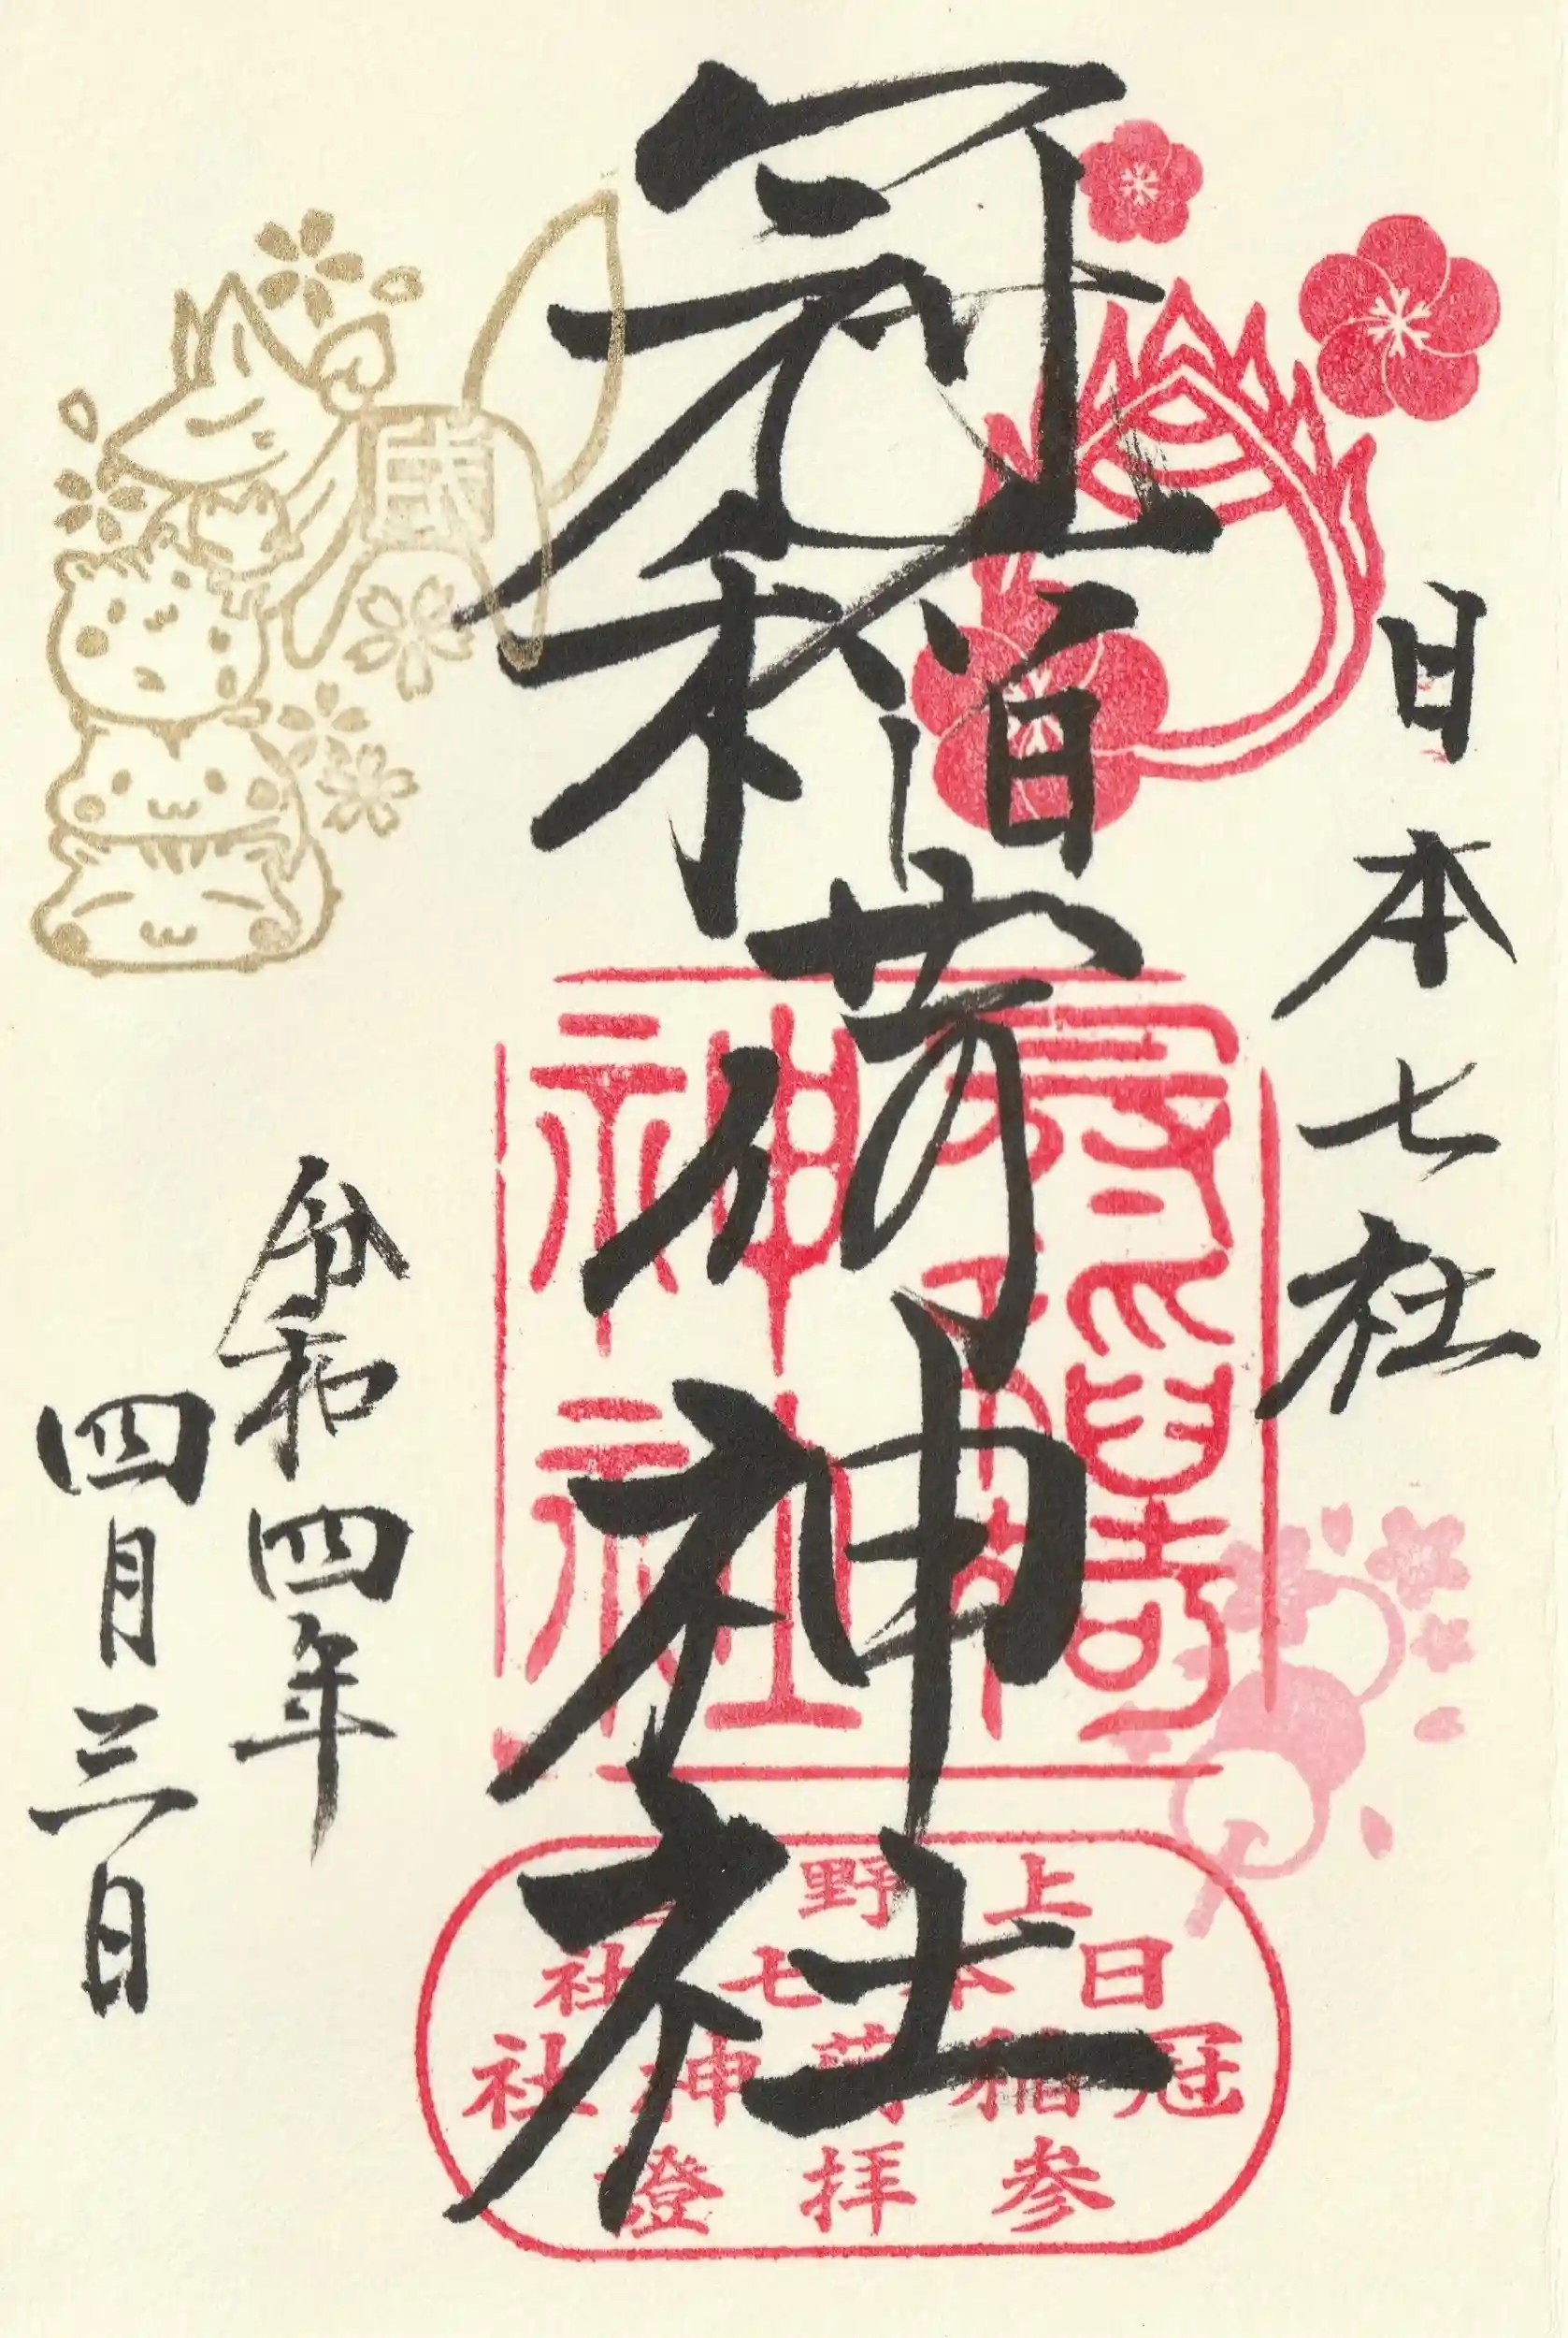 日本七社
冠稲荷神社
令和四年
四月三日
上野
日本七社
冠稲荷神社
参拝證